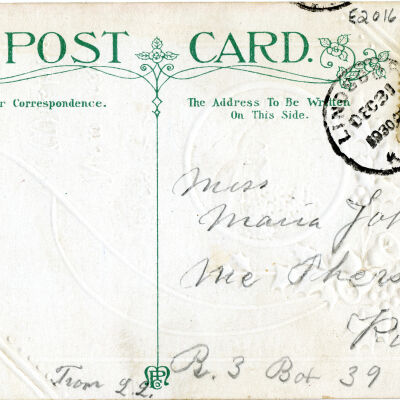 E2016
POST CARD.
r Correspondence.
The Address To Be Written
On This Side.
LIND
DEC 31
Miss
Maria Joh
Mc Phers
B. 3 Box 39
From L.L.